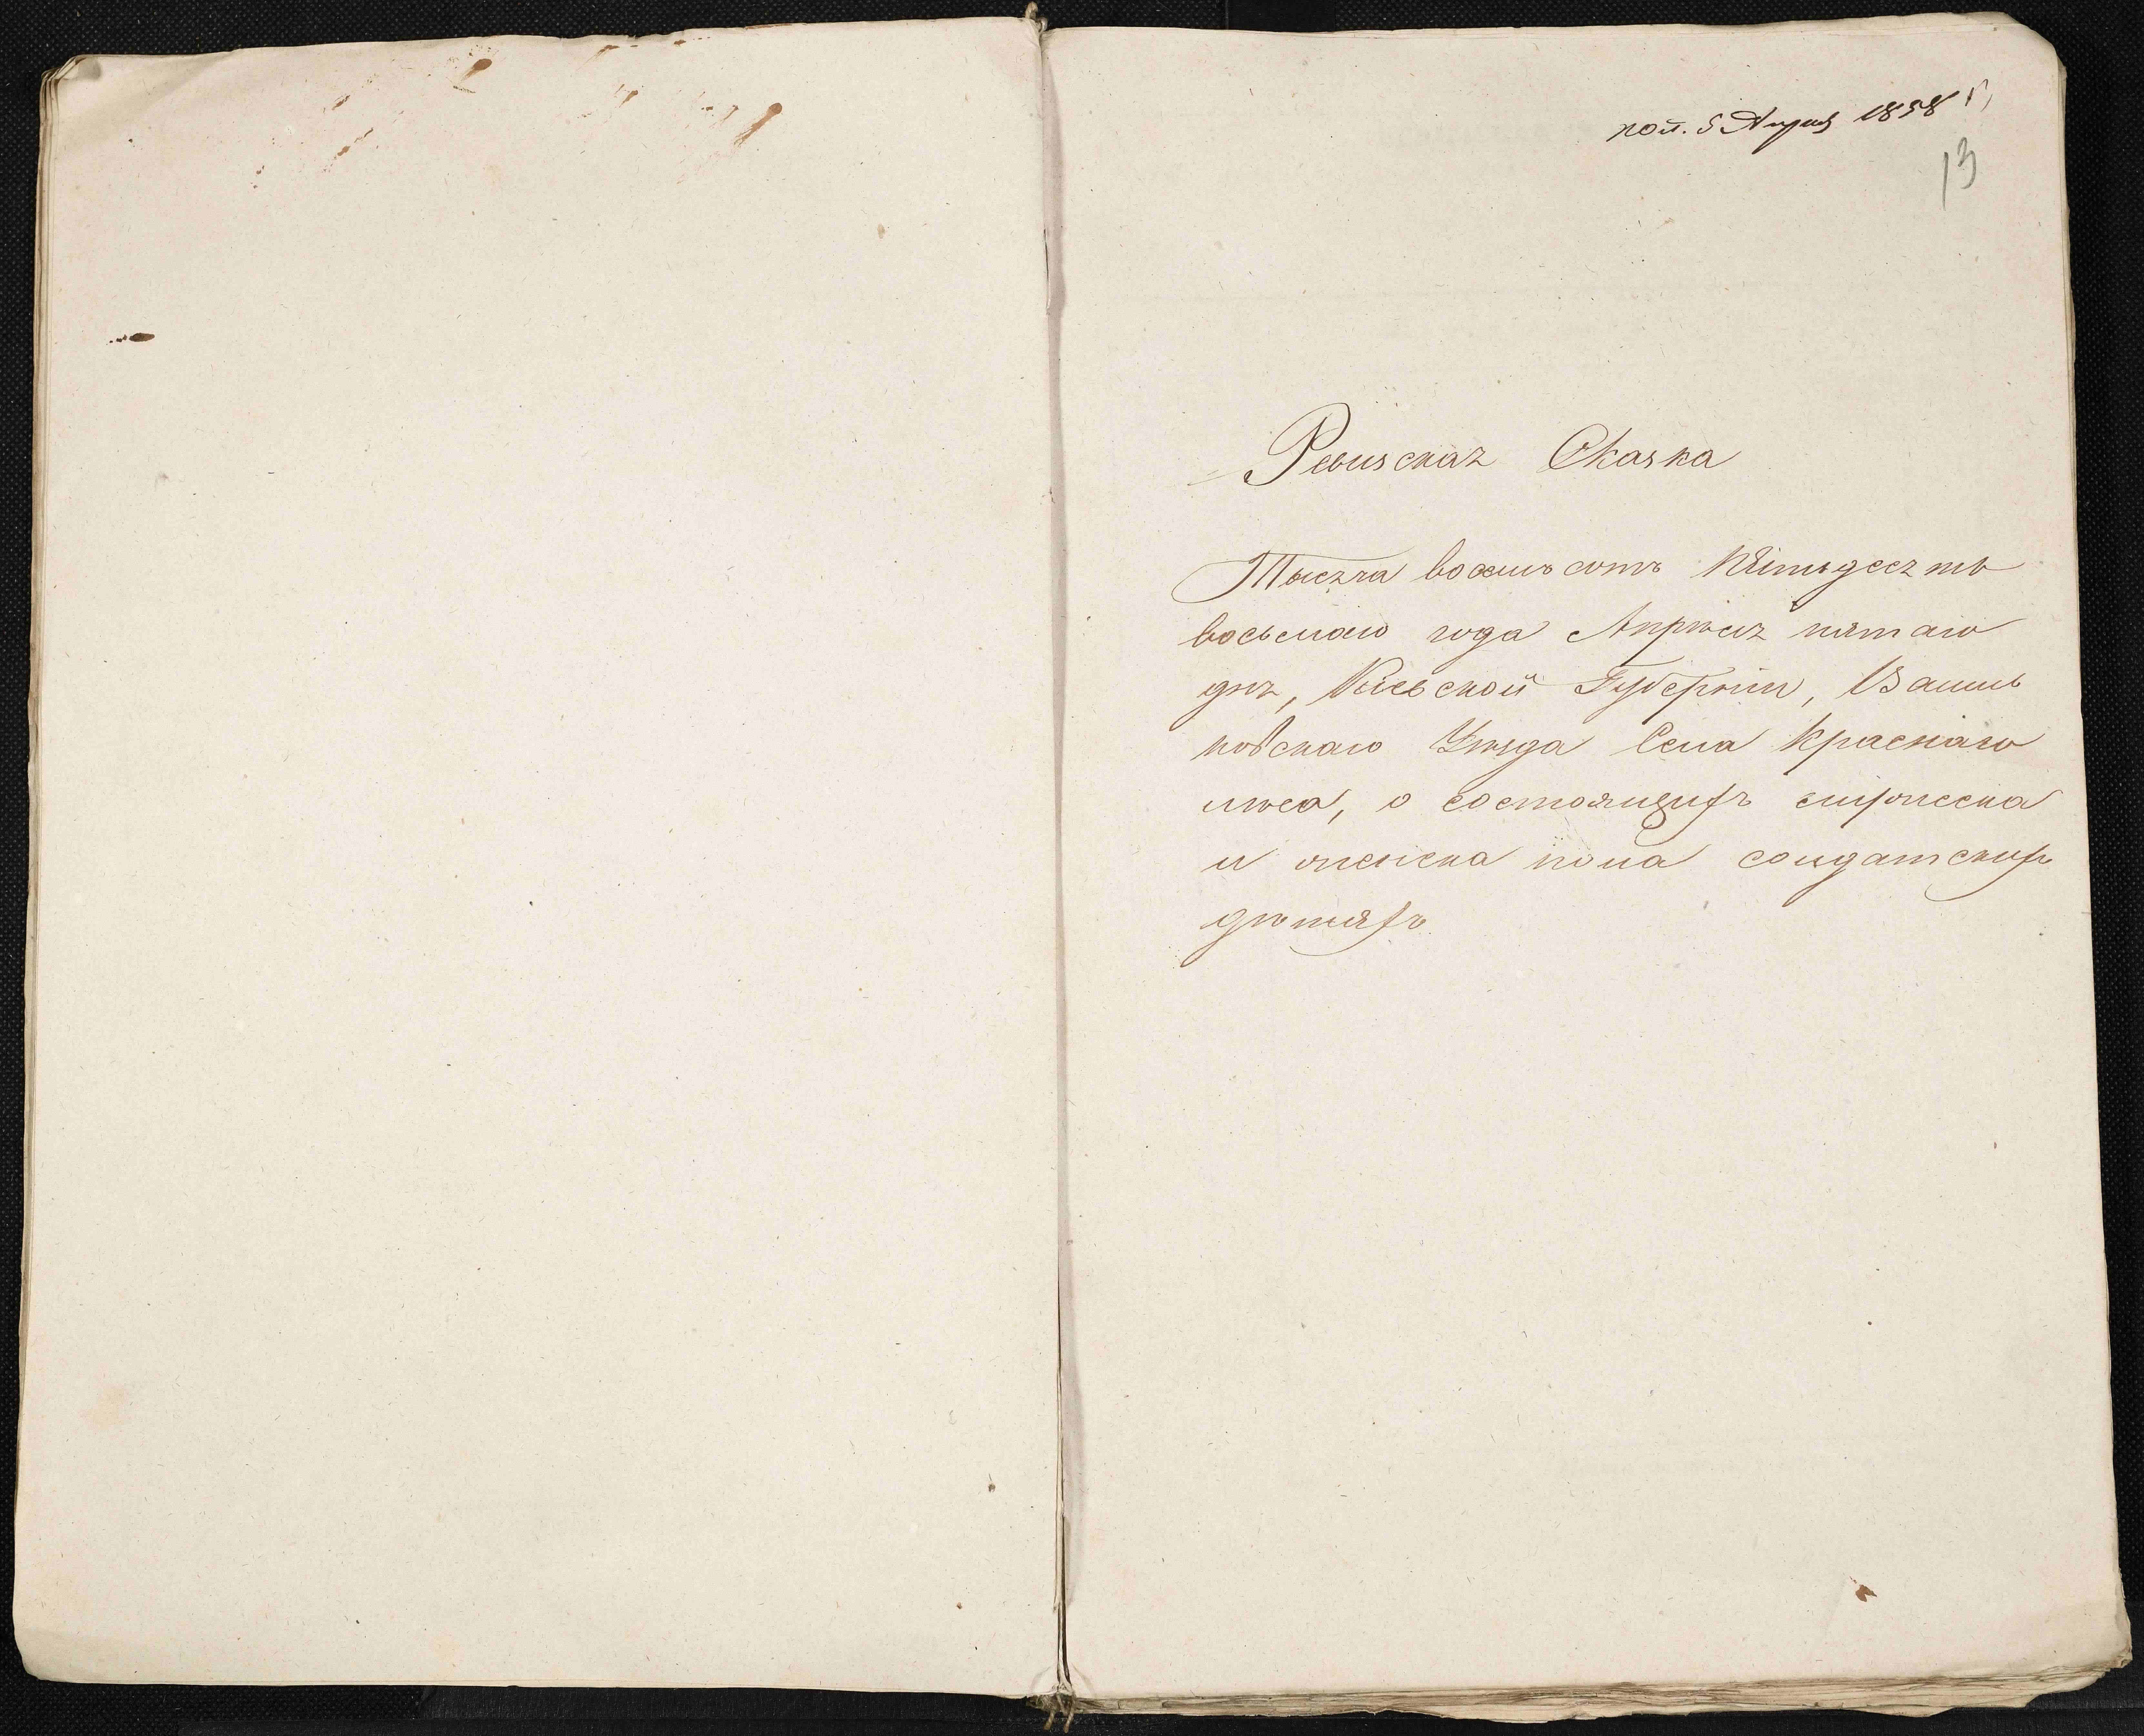 пол. 5 Апрѣля 1858 г.
13
Ревизская Сказка
Тысяча восимъ сотъ пятьдесятъ
восьмаго года Апрѣля пятаго
дня, Кіевской Губерніи, Василь
ковскаго Уѣзда Села Краснаго
лѣса, о состоящихъ мужеска
и женска пола солдатскихъ
дѣтяхъ.